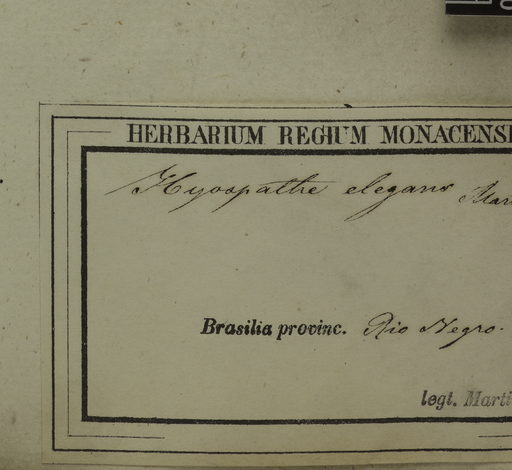 HERBARIUM REGIUM MONACENS
Hyospathe elegans Mart
Brasilia provinc. Rio Negro.
legt. Marti